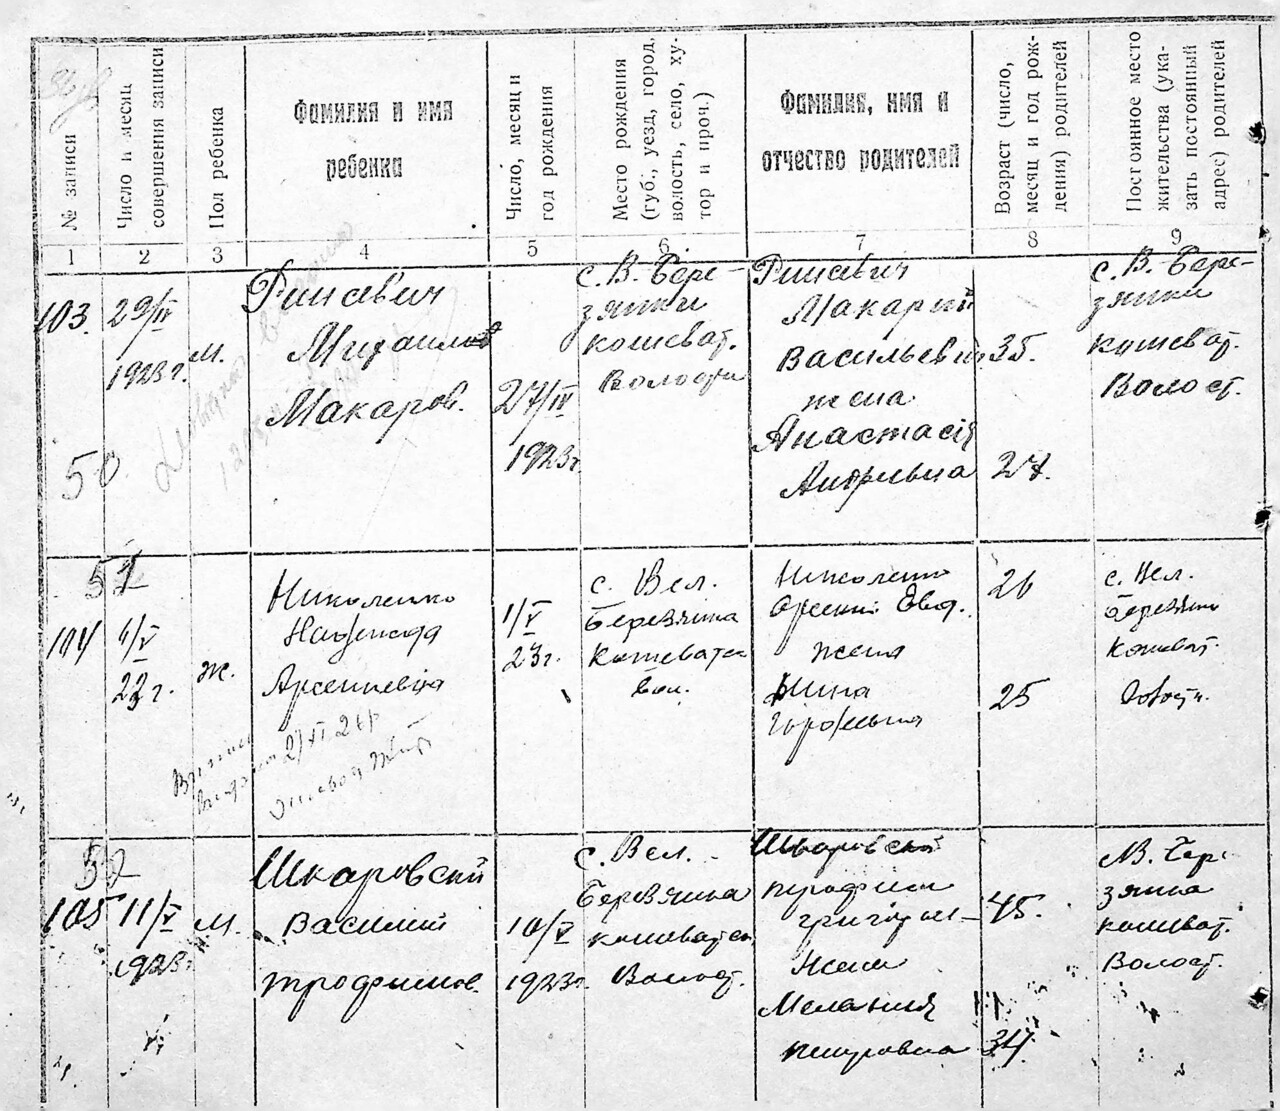 № записи
Число и месяц
совершения записи
Пол ребенка
Фамилия и имя
ребенка
Число, месяц и
год рождения
Место рождения
(губ., уезд, город,
волость, село, ху-
тор и проч.)
Фамилия, имя и
отчество родителей
Возраст (число,
месяц и год рож-
дения) родителей
Постоянное место
жительства (ука-
зать постоянный
адрес) родителей
1 2 3 4 5 6 7 8 9
103.
50
29/IV
1923 г.
м.
Михаил
Макаров.
27/IV
1923 г.
с. В.-Бере-
зянки
кошеват.
Волости
Макарий
Васильевич
жена
Анастасія
Андреевна
35.
27.
с. В.-Бере-
зянки
кошеват.
Волост.
51
104
1/V
23 г.
ж.
Николенко
Надежда
Арсениевна
1/V
23 г.
с. Вел.
Березянка
Кошеватск
Вол.
Николенко
Арсений Евд.
жена
26
25
с. Вел.
Березянки
Кошеват.
Волости.
52
105
11/V
1923 г.
м.
Шкаровский
Василий
Трофимов.
10/V
1923 г.
с. Вел.
Березянка
кошеватск.
Волост.
Шкаровский
Трофим
Григорьев
жена
Мелания
Петровна
45.
34.
В. Бере
зянка
кошеват.
Волост.